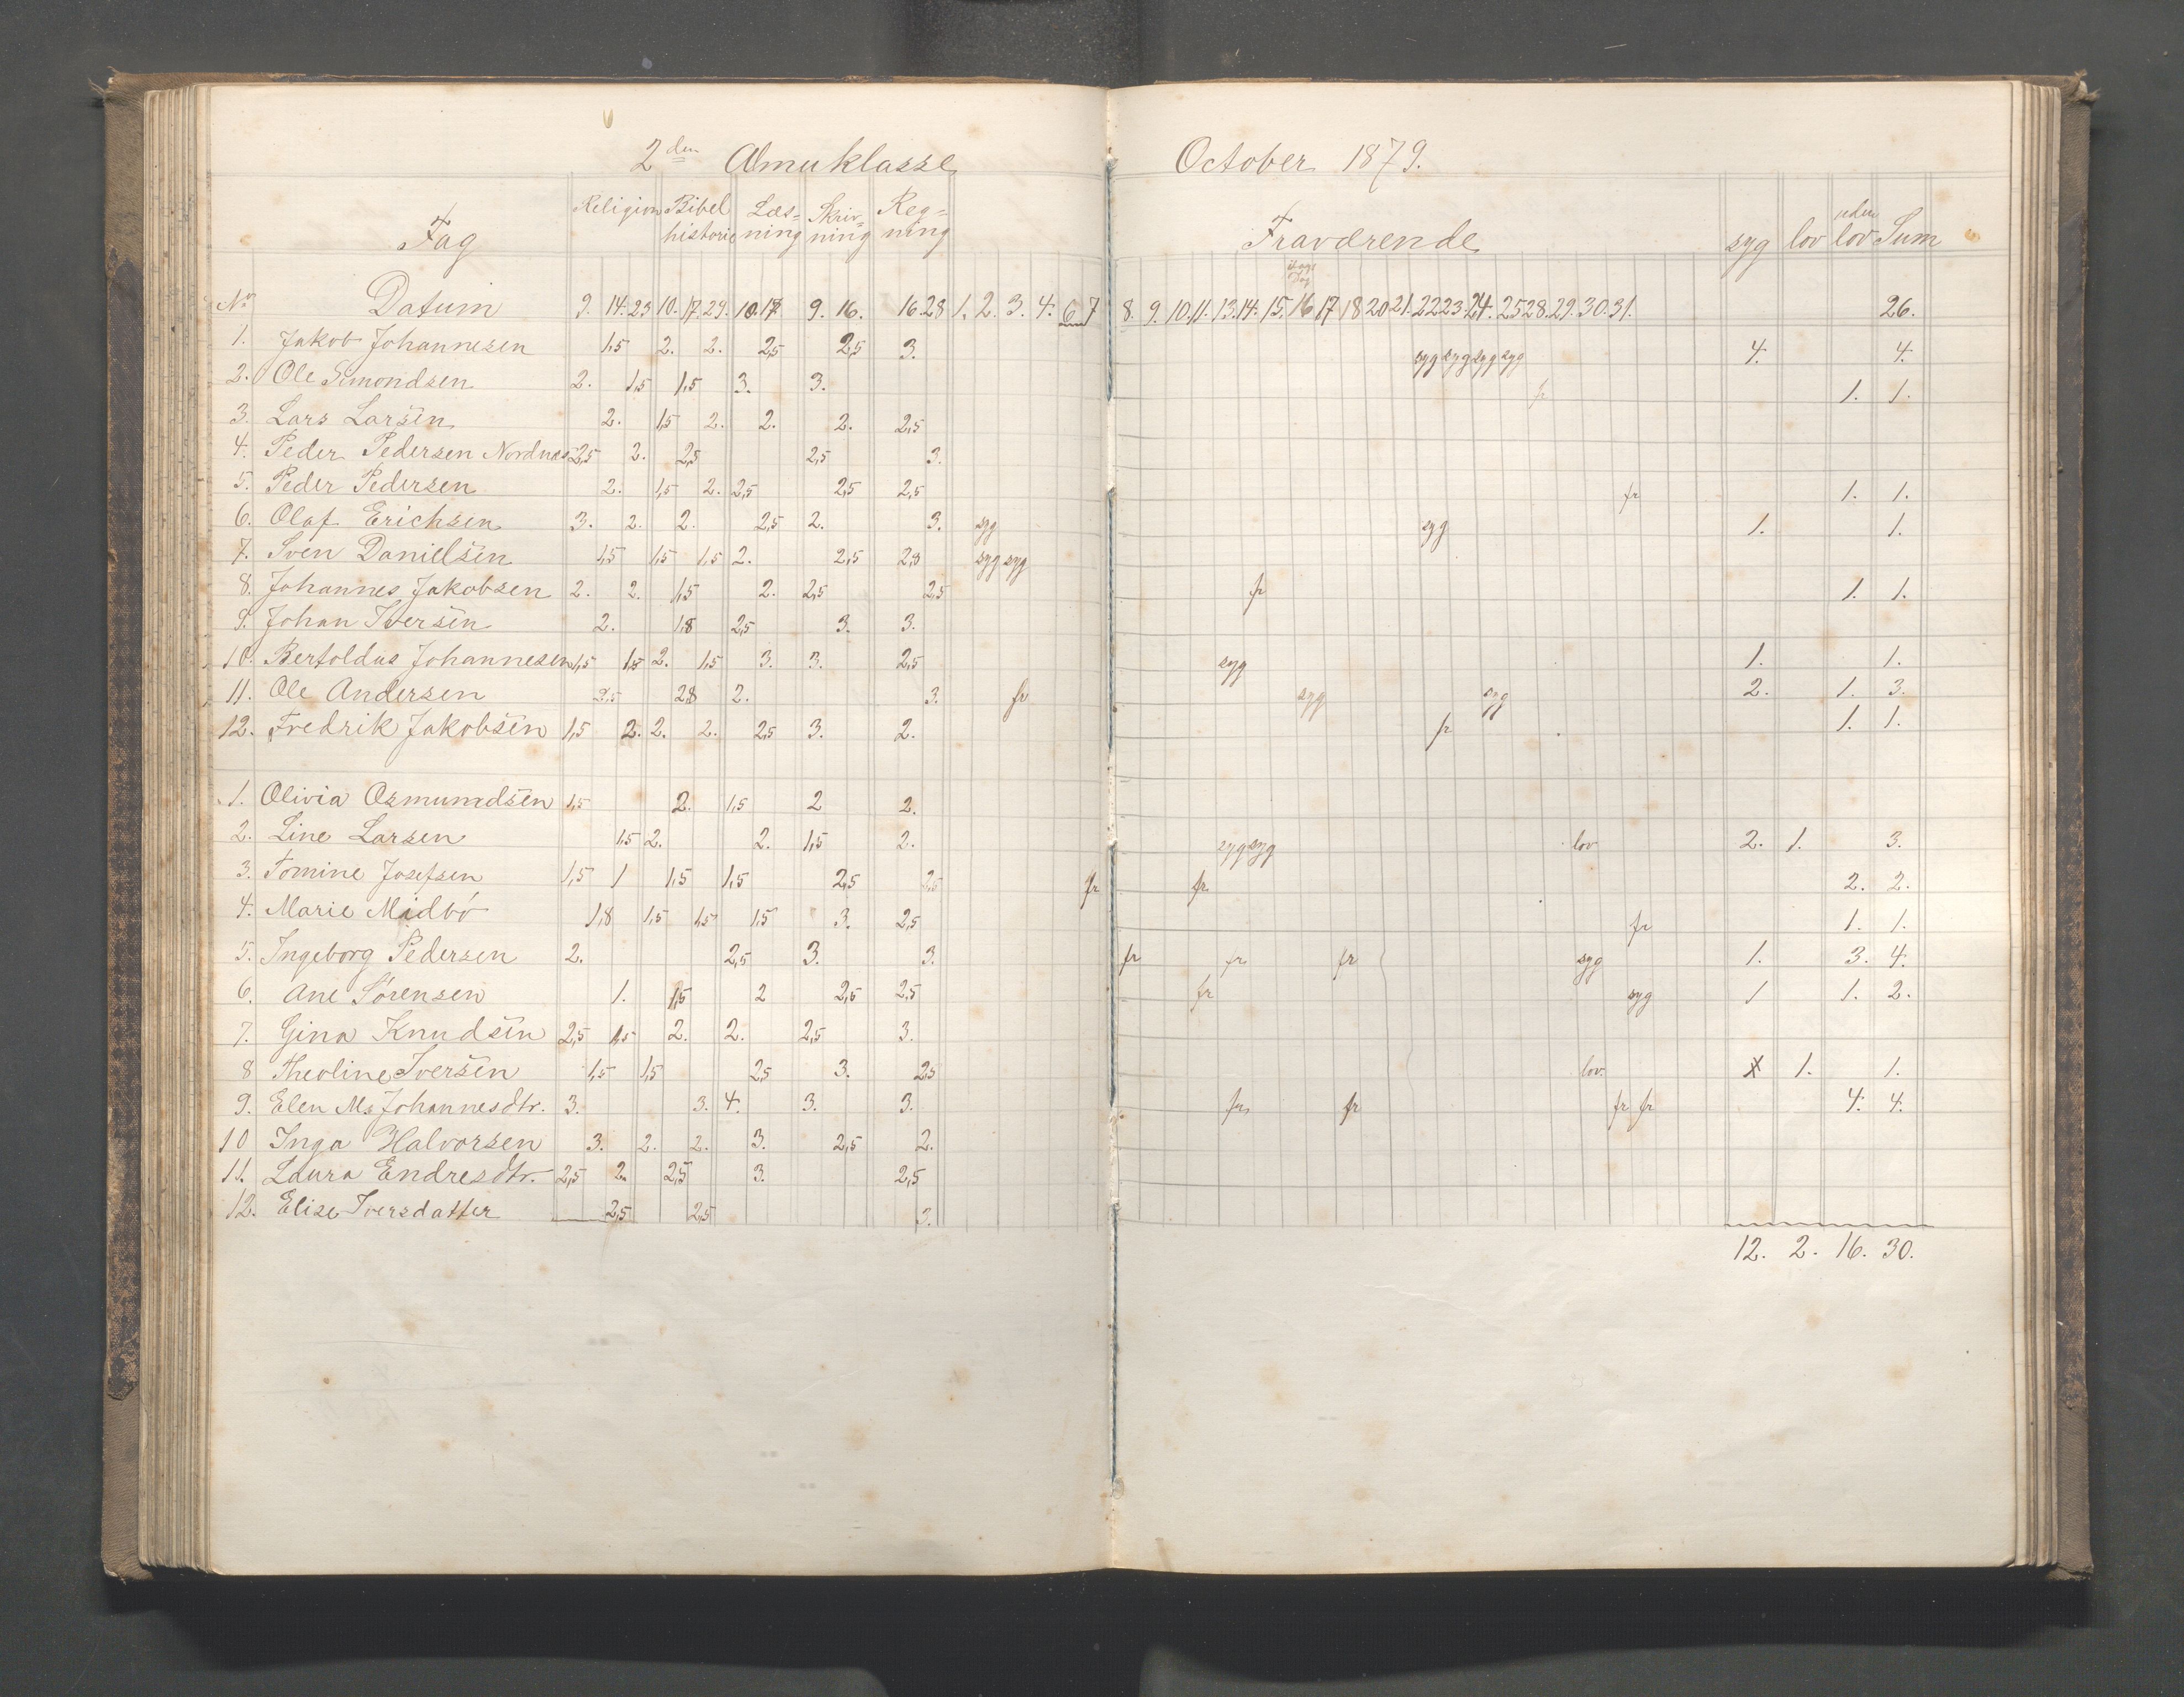 2den Almuklasse October 1879.
Fag Religion Bibel historie Læs= ning Skriv= ning Reg= ning Fraværende syg lov uden lov Sum
No Datum 9. 14. 23 10. 17. 29. 10. 17. 9. 16. 16. 28 1. 2. 3. 4. 6 7 8. 9. 10. 11. 13. 14. 15. 16 17 18 20 21. 22 23. 24. 25 28. 29. 30. 31. 26.
1. Jakob Johannesen 1,5 2. 2. 2,5 2,5 3. syg syg syg syg 4. 4.
2. Ole Simondsen 2. 1,5 1,5 3. 3. fr 1. 1.
3. Lars Larsen 2. 1,5 2. 2. 2. 2,5
4. Peder Pedersen Nordnes 2,5 2. 2,5 2,5 3.
5. Peder Pedersen 2. 1,5 2. 2,5 2,5 2,5 fr 1. 1.
6. Olaf Erichsen 3. 2. 2. 2,5 2. 3. syg syg 1. 1.
7. Sven Danielsen 1,5 1,5 1,5 2. 2,5 2,8 syg syg
8. Johannes Jakobsen 2. 2. 1,5 2. 2,5 2,5 fr 1. 1.
9. Johan Iversen 2. 1,8 2,5 3. 3.
10. Bertoldus Johannesen 1,5 1,5 2. 1,5 3. 3. 2,5 syg 1. 1.
11. Ole Andersen 2,5 2,8 2. 3. fr syg syg 2. 1. 3.
12. Fredrik Jakobsen 1,5 2. 2. 2. 2,5 3. 2. fr 1. 1.
1. Olivia Osmundsen 1,5 2. 1,5 2 2.
2. Line Larsen 1,5 2. 2. 1,5 2. syg syg lov 2. 1. 3.
3. Tomine Josefsen 1,5 1 1,5 1,5 2,5 2,5 fr fr 2. 2.
4. Marie Midbö 1,8 1,5 1,5 1,5 3. 2,5 fr 1. 1.
5. Ingeborg Pedersen 2. 2,5 3. 3. fr fr fr syg 1. 3. 4.
6. Ane Sörensen 1. 1,5 2 2,5 2,5 fr syg 1 1. 2.
7. Gina Knudsen 2,5 1,5 2. 2. 2,5 3.
8 Theoline Iversen 1,5 1,5 2,5 3. 2,5 lov. 1. 1.
9. Elen M. Johannesdtr. 3. 3. 4. 3. 3. fr fr fr fr 4. 4.
10 Inga Halvorsen 3. 2. 2. 3. 2,5 2.
11. Laura Endresdtr. 2,5 2. 2,5 3. 2,5
12. Elise Iversdatter 2,5 2,5 3.
12. 2. 16. 30.